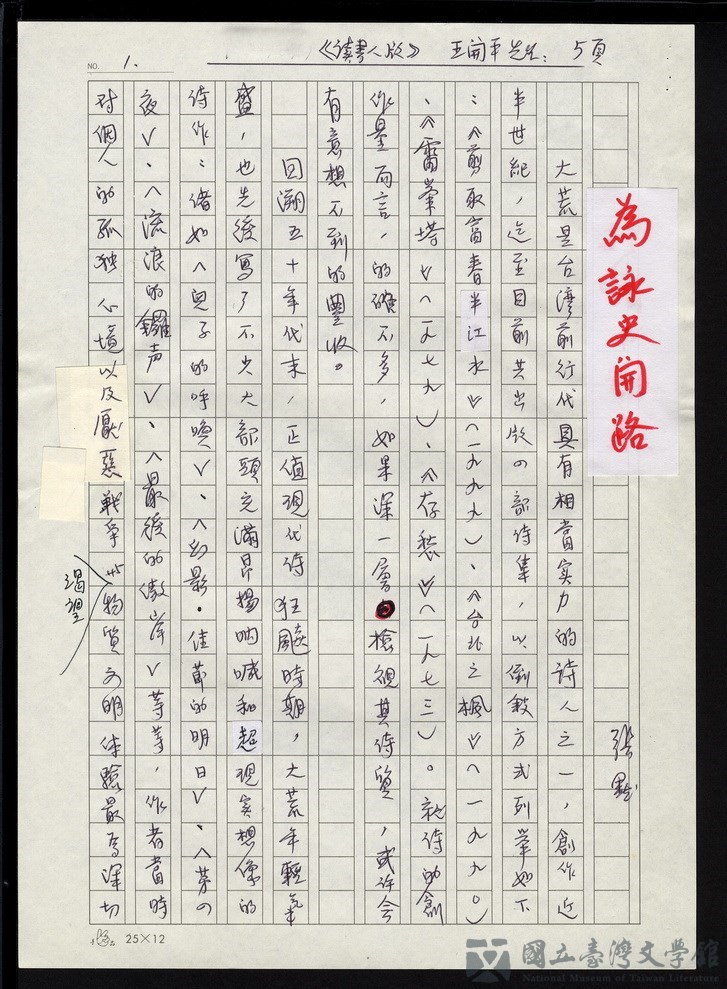 《读書人版》 王開平先生: 5頁
NO. 1.
為詠史開路
張默
大荒是台湾前行代具有相當实力的詩人之一，創作近
半世紀，迄至目前共出版四部诗集，以倒敍方式列举如下
：《剪取富春半江水》（一九九九）、《台北之楓》（一九九〇）
、《雷峯塔》（一九七九）、《存愁》（一九七三）。就诗的創
作量而言，的確不多，如果深一層檢視其诗質，或许会
有意想不到的豐收。
回溯五十年代末，正值現代诗狂飚時期，大荒年輕氣
盛，也先後寫了不少大部頭充滿昂揚吶喊和超現实想像的
诗作：诸如〈兒子的呼喚〉、〈幻影·佳節的明日〉、〈第四
夜〉、〈流浪的鑼声〉、〈最後的傲岸〉等等，作者當時
对個人的孤独心境以及厭惡戰争
渴望
物質文明体驗最為深切
25×12
國立臺灣文學館
National Museum of Taiwan Literature